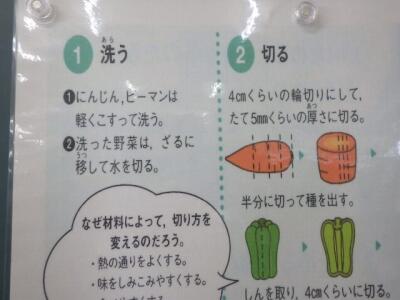 1 洗う
❶にんじん,ピーマンは
軽くこすって洗う。
❷洗った野菜は，ざるに
移して水を切る。
なぜ材料によって，切り方を
変えるのだろう。
・熱の通りをよくする。
・味をしみこみやすくする。
2 切る
4cmくらいの輪切りにして，
たて5mmくらいの厚さに切る。
半分に切って種を出す。
しんを取り，4cmくらいに切る。